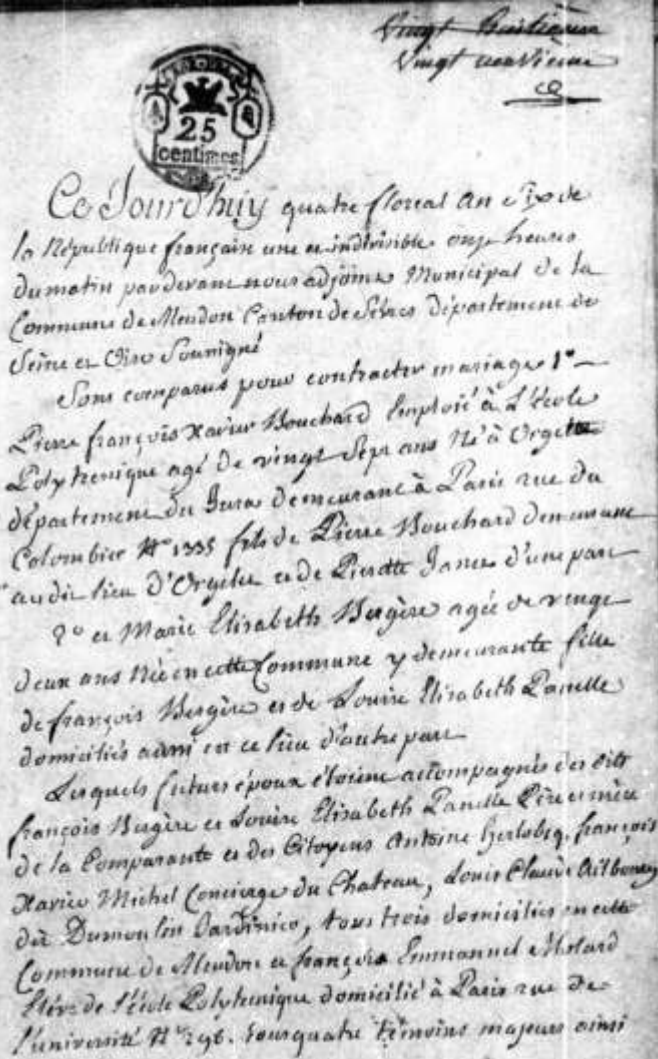 Vingt huitieme
Vingt neuvieme
25
centimes
Ce Jourd'huy quatre floreal an Six de
la République française une et indivisible onze heures
du matin pardevant nous adjoint Municipal de la
Commune de Meudon Canton de Sèvres département de
Seine et Oise Soussigné
Sont comparus pour contracter mariage 1º
Pierre françois Xavier Bouchard Emploié à L'école
Polythenique agé de vingt Sept ans Né à Orgelet
département du Jura demeurant à Paris rue du
Colombier Nº 1335 fils de Pierre Bouchard demeurant
audit lieu d'Orgelet et de Pierrette Janet d'une part
2º et Marie Elisabeth Bergère agée de vingt
deux ans Née en cette Commune y demeurante fille
de françois Bergère et de Louise Elisabeth Panelle
domiciliés aussi en ce lieu d'autre part
Lesquels futurs époux étoient accompagnés des dits
françois Bergère et Louise Elisabeth Panelle Père et mère
de la Comparante et des Citoyens Antoine françois
Xavier Michel Concierge du Chateau, Louis Claude
dit Dumoulin Jardinier, tous trois domiciliés en cette
Commune de Meudon et françois Emmanuel Molard
Elève de l'école Polythenique domicilié à Paris rue de
l'université Nº 296. tous quatre témoins majeurs ainsi